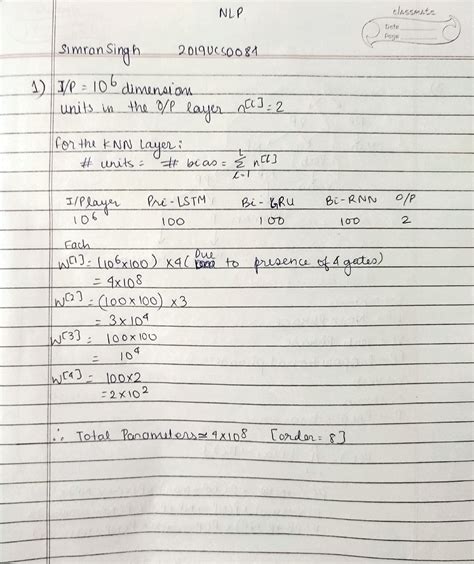 NLP
classmate
Date
Page
Simran Singh 2019UCS0081
1) I/P = 10⁶ dimension
units in the O/P layer n[L] = 2
for the KNN Layer:
# units = # bias = Σ n[l]
l=1
I/P layer Pri-LSTM Bi-GRU Bi-RNN O/P
10⁶ 100 100 100 2
Each
W[1] = (10⁶x100) x4 (Due to presence of 4 gates)
= 4x10⁸
W[2] = (100x100) x3
= 3x10⁴
W[3] = 100x100
= 10⁴
W[4] = 100x2
= 2x10²
∴ Total Parameters ≈ 4x10⁸ [order = 8]